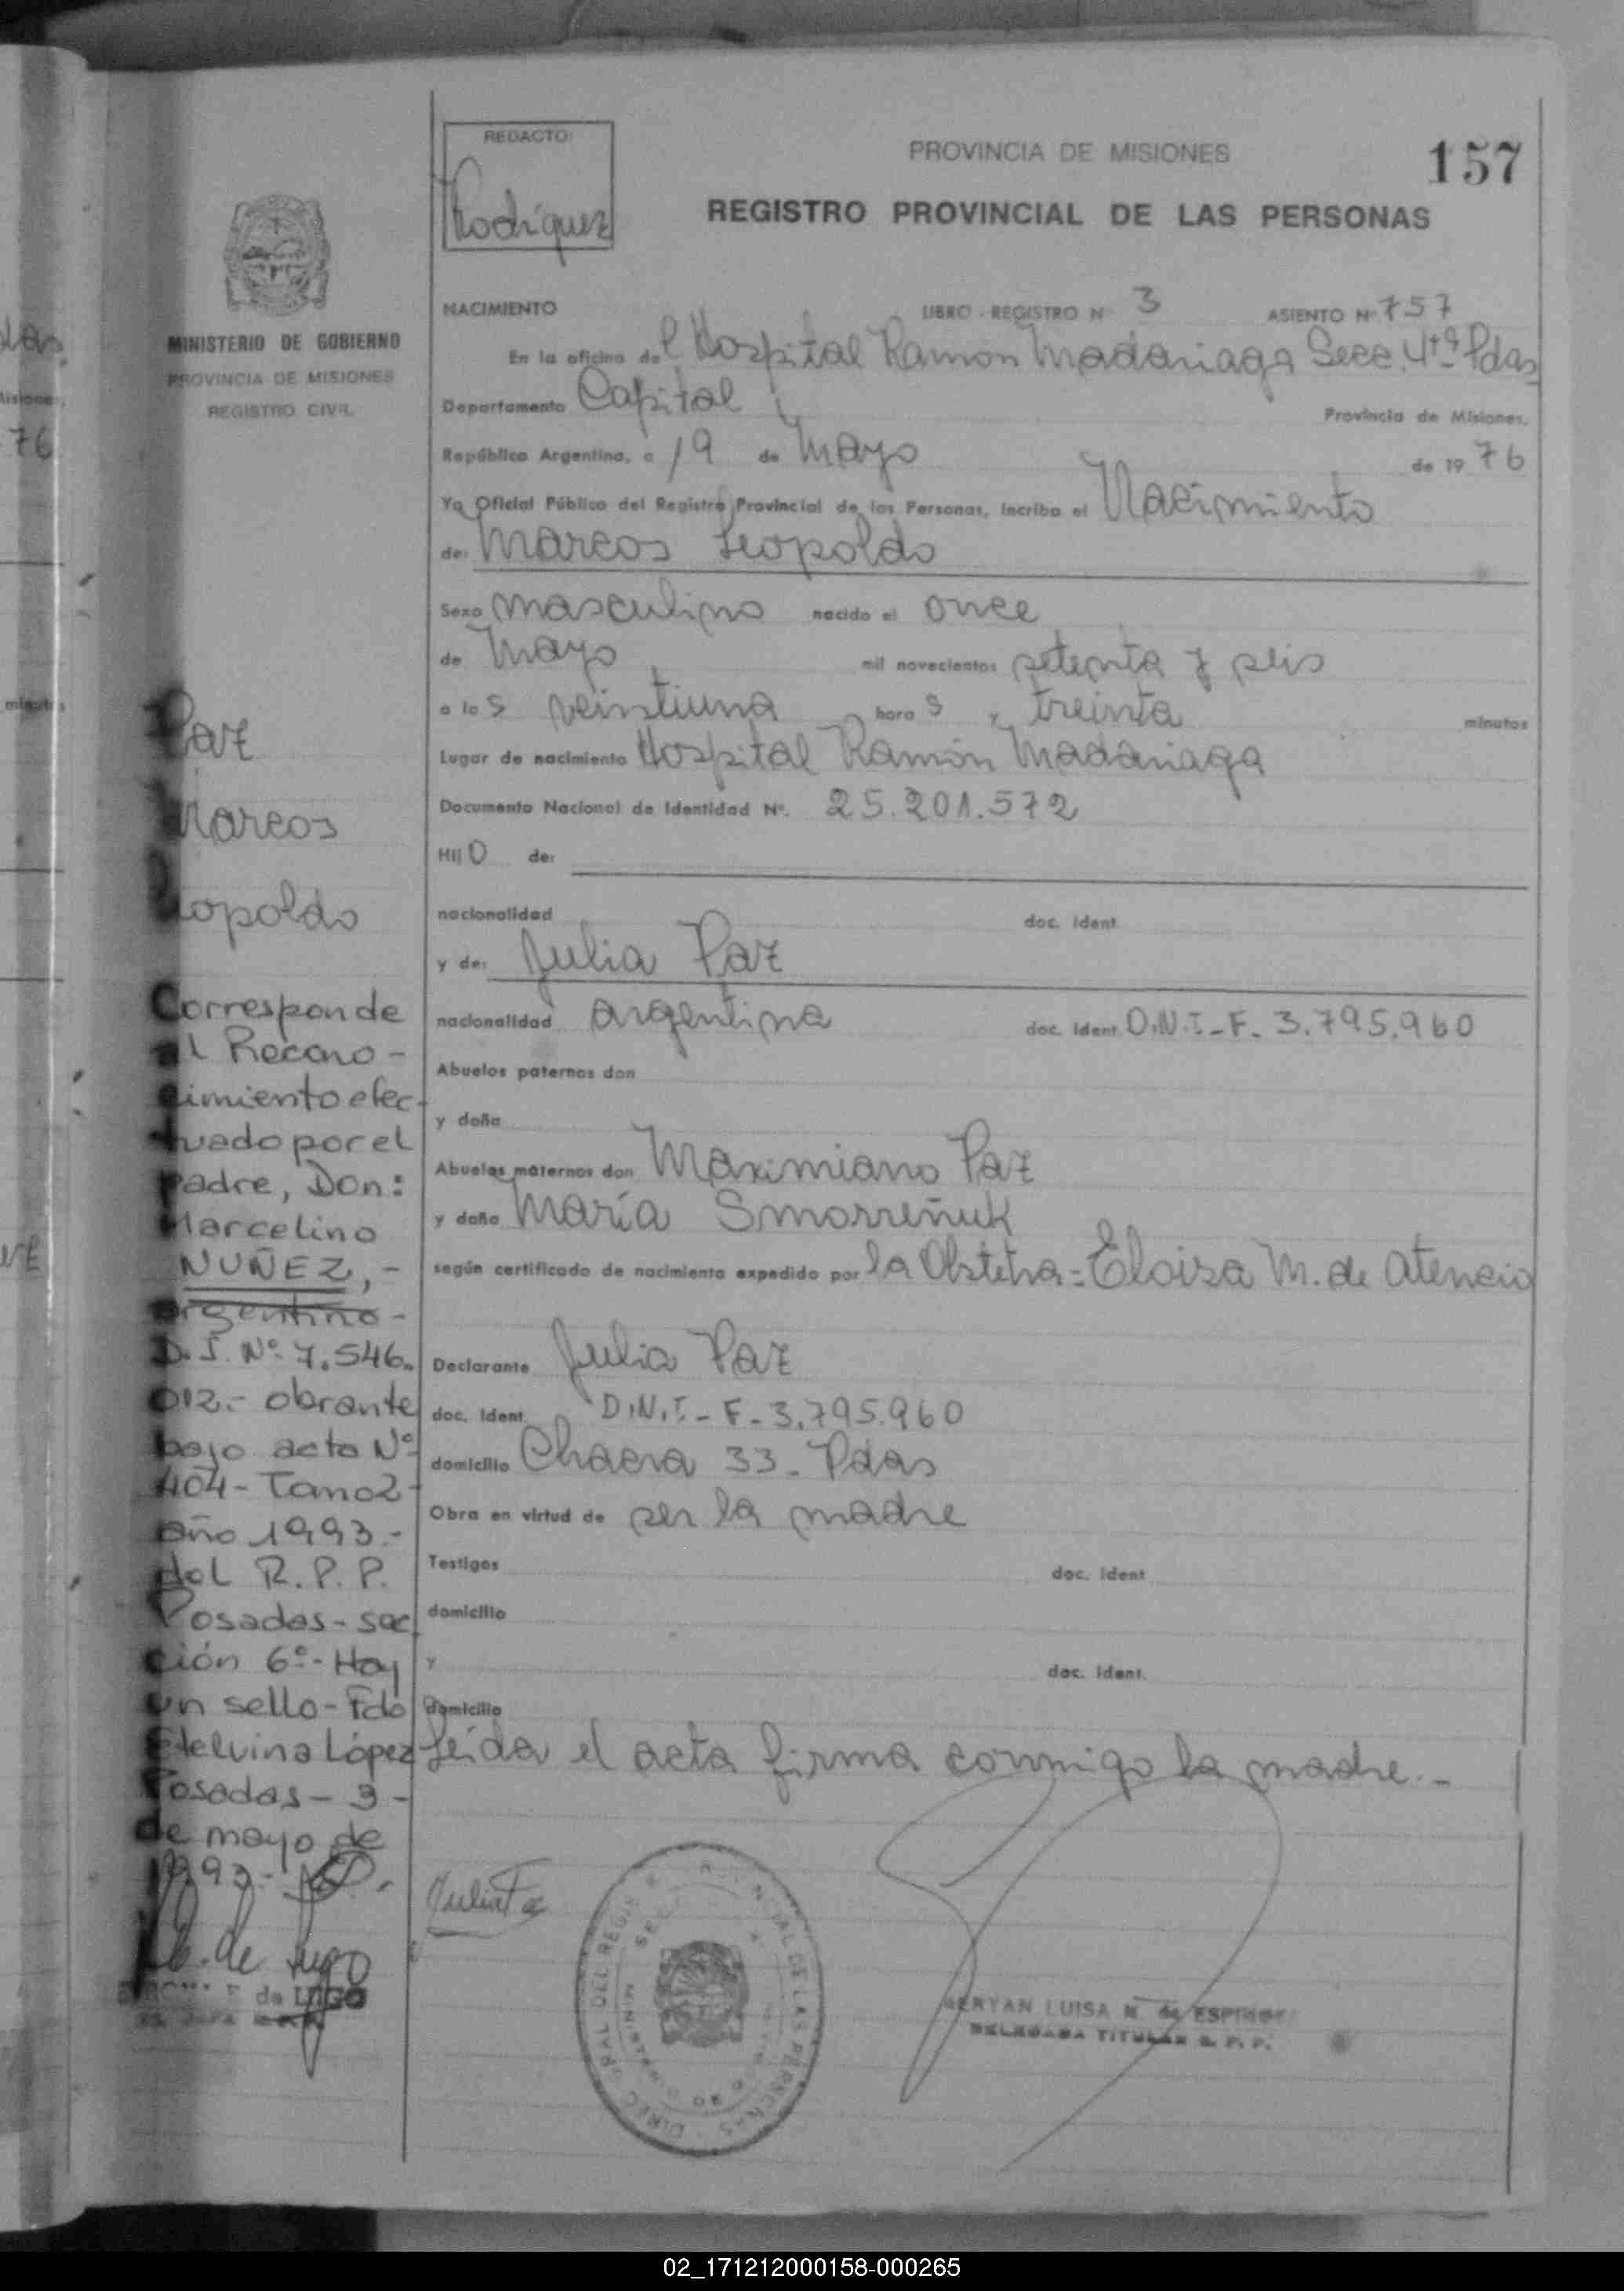 REDACTO:
Rodríguez
PROVINCIA DE MISIONES
157
REGISTRO PROVINCIAL DE LAS PERSONAS
MINISTERIO DE GOBIERNO
PROVINCIA DE MISIONES
REGISTRO CIVIL
NACIMIENTO LIBRO - REGISTRO Nº 3 ASIENTO Nº 757
En la oficina del Hospital Ramon Madariaga Secc. 4tª Pdas
Departamento Capital Provincia de Misiones.
República Argentina, a 19 de Mayo de 19 76
Yo Oficial Público del Registro Provincial de las Personas, incribo el Nacimiento
de: Marcos Leopoldo
Sexo masculino nacido el once
de Mayo mil novecientos setenta y seis
a las veintiuna horas y treinta minutos
Lugar de nacimiento Hospital Ramón Madariaga
Documento Nacional de Identidad Nº. 25.201.572
Hijo de:
nacionalidad doc. ident.
y de: Julia Paz
nacionalidad argentina doc. ident. D.N.I-F- 3.795.960
Abuelos paternos don
y doña
Abuelos maternos don Maximiano Paz
y doña María Smorreñuk
según certificado de nacimiento expedido por la Obstetra = Eloisa M. de Atencio
Declarante Julia Paz
doc. ident. D.N.I.-F-3.795.960
domicilio Chacra 33 - Pdas
Obra en virtud de ser la madre
Testigos doc. ident.
domicilio
y doc. ident.
domicilio
Leida el acta firma conmigo la madre.-
Paz
Marcos
Leopoldo
Corresponde
al Recono-
cimiento efec-
tuado por el
padre, Don:
Marcelino
NUÑEZ,-
argentino-
D.I. Nº 7.546.
012.- obrante
bajo acta Nº
404- Tomo 2-
año 1993.-
del R.P.P.
Posadas- sec
ción 6º- Hay
un sello- Fdo
Etelvina López
Posadas- 3-
de mayo de
1993.-
de Lugo
de LUGO
Julia Paz
LUISA M. de ESPINOS
DELEGADA TITULAR R. P. P.
02_171212000158-000265